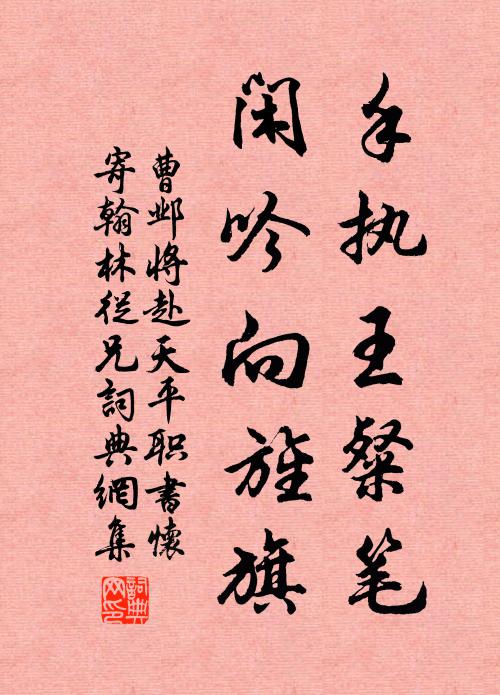 手执王粲笔
闲吟向旌旗
曹邺将赴天平职书懷
寄翰林従兄詞典網集